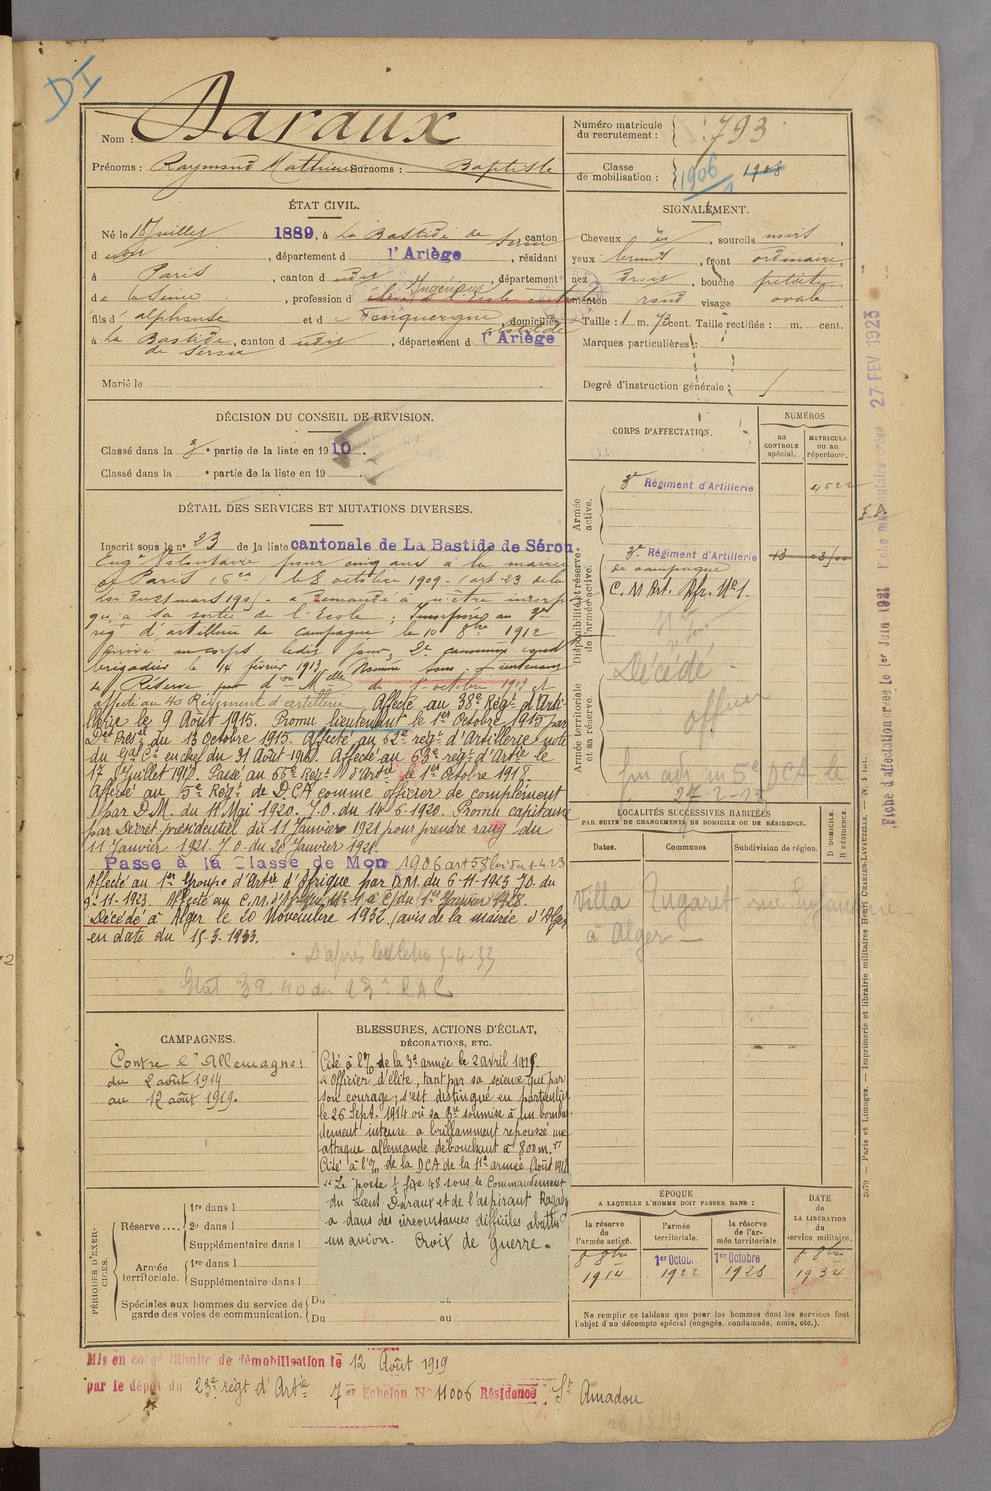 DI
Nom : Daraux
Prénoms : Raymond Mathieu Surnoms : Baptiste
Numéro matricule du recrutement : 793
Classe de mobilisation : 1906 1908
ÉTAT CIVIL.
Né le 18 Juillet 1889, à La Bastide de Serou, canton
d udit, département d l'Ariège, résidant
à Paris, canton d udit, département
de la Seine, profession d Ingénieur
fils d' alphonse et d domiciliés
à La Bastide de Serou, canton d udit, département d l'Ariège
Marié le
SIGNALEMENT.
Cheveux , sourcils noirs,
yeux bruns, front ordinaire,
nez droit, bouche petite,
menton rond visage ovale
Taille : 1 m. 73 cent. Taille rectifiée : m. cent.
Marques particulières :
Degré d'instruction générale :
DÉCISION DU CONSEIL DE REVISION.
Classé dans la 3e partie de la liste en 1910.
Classé dans la e partie de la liste en 19 .
DÉTAIL DES SERVICES ET MUTATIONS DIVERSES.
Inscrit sous le no 23 de la liste cantonale de La Bastide de Sérou.
Eng. Volontaire pour cinq ans à la mairie
de Paris le 8 octobre 1909 - (art. 23 de la
Loi du 21 mars 1905) - a demandé à n'être incorp
qu'à sa sortie de l'Ecole ; Incorporé au 3e
rég. d'artillerie de campagne le 10 8bre 1912
Arrivé au corps ledit jour, 2e canonnier
brigadier le 14 février 1913, Nommé sous-lieutenant
de Réserve du 1er octobre 1913 et
affecté au 40 Régiment d'artillerie. Affecté au 38e Régt d'Arti-
llerie le 9 Août 1915. Promu lieutenant le 1er Octobre 1915 par
Det Presel du 13 Octobre 1915. Affecté au 62e regt d'Artillerie note
du Gal Ct en chef du 31 Août 1916. Affecté au 63e regt d'Artie le
17 Juillet 1917. Passé au 65e Régt d'Artie le 1er Octobre 1918.
Affecté au 5e Régt de DCA comme officier de complément
par D.M. du 11 Mai 1920. J.O. du 14-6-1920. Promu capitaine
par Décret présidentiel du 11 Janvier 1921 pour prendre rang du
11 Janvier 1921. J.O. du 20 Janvier 1921.
Passé à la Classe de Mon 1906 art 58 loi du 1.4.23
Affecté au 1er Groupe d'Artie d'Afrique par D.M. du 6-11-1923 J.O. du
9-11-1923. Affecté au C.M. d'Afrique No 1 à c/du 1er Janvier 1928.
Décédé à Alger le 20 Novembre 1932 (avis de la mairie d'Alger
en date du 15-3-1933.
D'après bulletin 5-4-33
Etat 39-40 du 23e RAC
CORPS D'AFFECTATION.
NUMÉROS
au CONTROLE spécial.
MATRICULE ou au répertoire.
Armée active.
3e Régiment d'Artillerie 4522
Disponibilité et réserve de l'armée active.
3e Régiment d'Artillerie
de campagne
C. M Art. Afr. No 1.
Décédé
Armée territoriale et sa réserve.
officier
5e DCA le
27-2-
LOCALITÉS SUCCESSIVES HABITÉES
PAR SUITE DE CHANGEMENTS DE DOMICILE OU DE RÉSIDENCE.
Dates. Communes Subdivision de région. D DOMICILE. R RÉSIDENCE.
Villa
à Alger
CAMPAGNES.
Contre l'Allemagne :
du 2 août 1914
au 12 août 1919.
BLESSURES, ACTIONS D'ÉCLAT,
DÉCORATIONS, ETC.
Cité à l'O/ de la 3e armée le 2 avril 1915.
« Officier d'élite, tant par sa science que par
son courage, s'est distingué en particulier
le 26 Sept. 1914 où sa Bie soumise à un bombar
dement intense a brillamment repoussé une
attaque allemande débouchant à 800 m. »
Cité à l'O/ de la DCA de la 11e armée Août 1918
" Le poste ½ fixe 48 sous le Commandement
du Lieut. Daraux et de l'aspirant
a dans des circonstances difficiles abattu
un avion. Croix de guerre.
PÉRIODES D'EXERCICES.
Réserve ....
1re dans l
2e dans l
Supplémentaire dans l
Armée territoriale.
1re dans l
Supplémentaire dans l
Spéciales aux hommes du service de garde des voies de communication.
Du au
Du au
ÉPOQUE
A LAQUELLE L'HOMME DOIT PASSER DANS :
la réserve de l'armée active.
l'armée territoriale.
la réserve de l'armée territoriale.
DATE de LA LIBÉRATION du service militaire.
8 8bre 1914
1er Octob. 1922
1er Octobre 1928
8 8bre 1934
Ne remplir ce tableau que pour les hommes dont les services font
l'objet d'un décompte spécial (engagés, condamnés, omis, etc.).
Mis en congé illimité de démobilisation le 12 Août 1919
par le dépôt du 23e régt d'Artie 7er Echelon No 11006 Résidence St Amadou
Fiche d'affectation créée le 1er Juin 1921 Fiche matriculaire créée 27 FEV 1923
2679 — Paris et Limoges. — Imprimerie et librairie militaires Henri CHARLES-LAVAUZELLE.